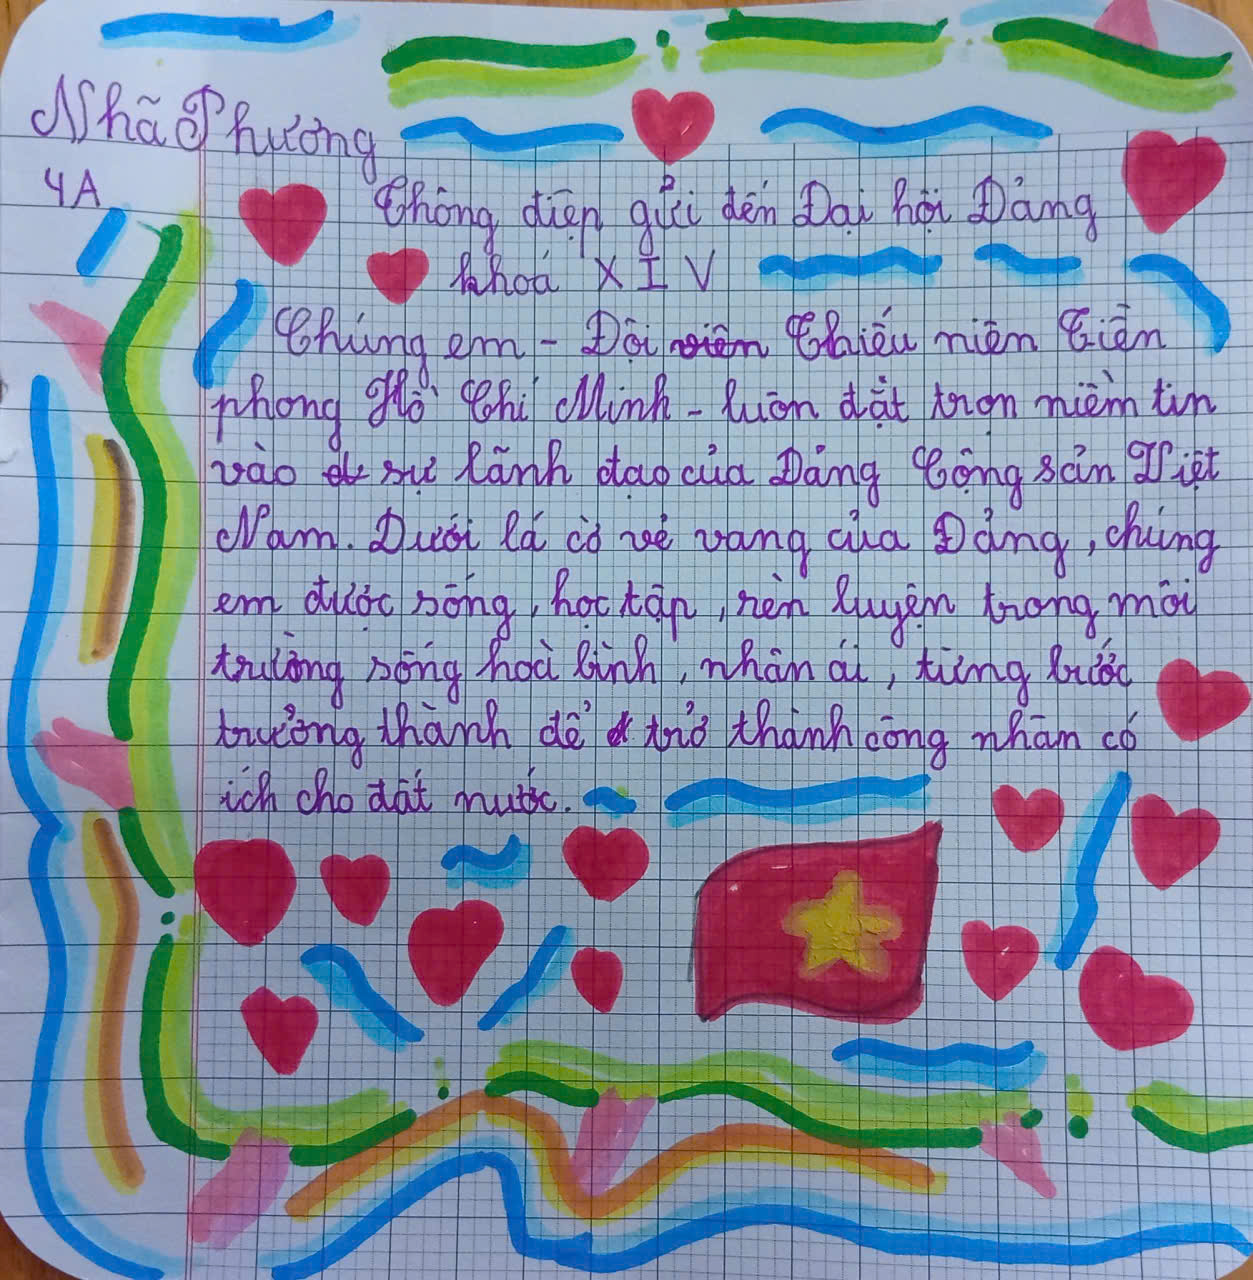 Nhã Phương
4A
Thông điệp gửi đến Đại hội Đảng
khoá XIV
Chúng em - Đội viên Thiếu niên Tiền
phong Hồ Chí Minh - luôn đặt trọn niềm tin
vào sự lãnh đạo của Đảng Cộng sản Việt
Nam. Dưới lá cờ vẻ vang của Đảng, chúng
em được sống, học tập, rèn luyện trong môi
trường sống hoà bình, nhân ái, từng bước
trưởng thành để trở thành công nhân có
ích cho đất nước.